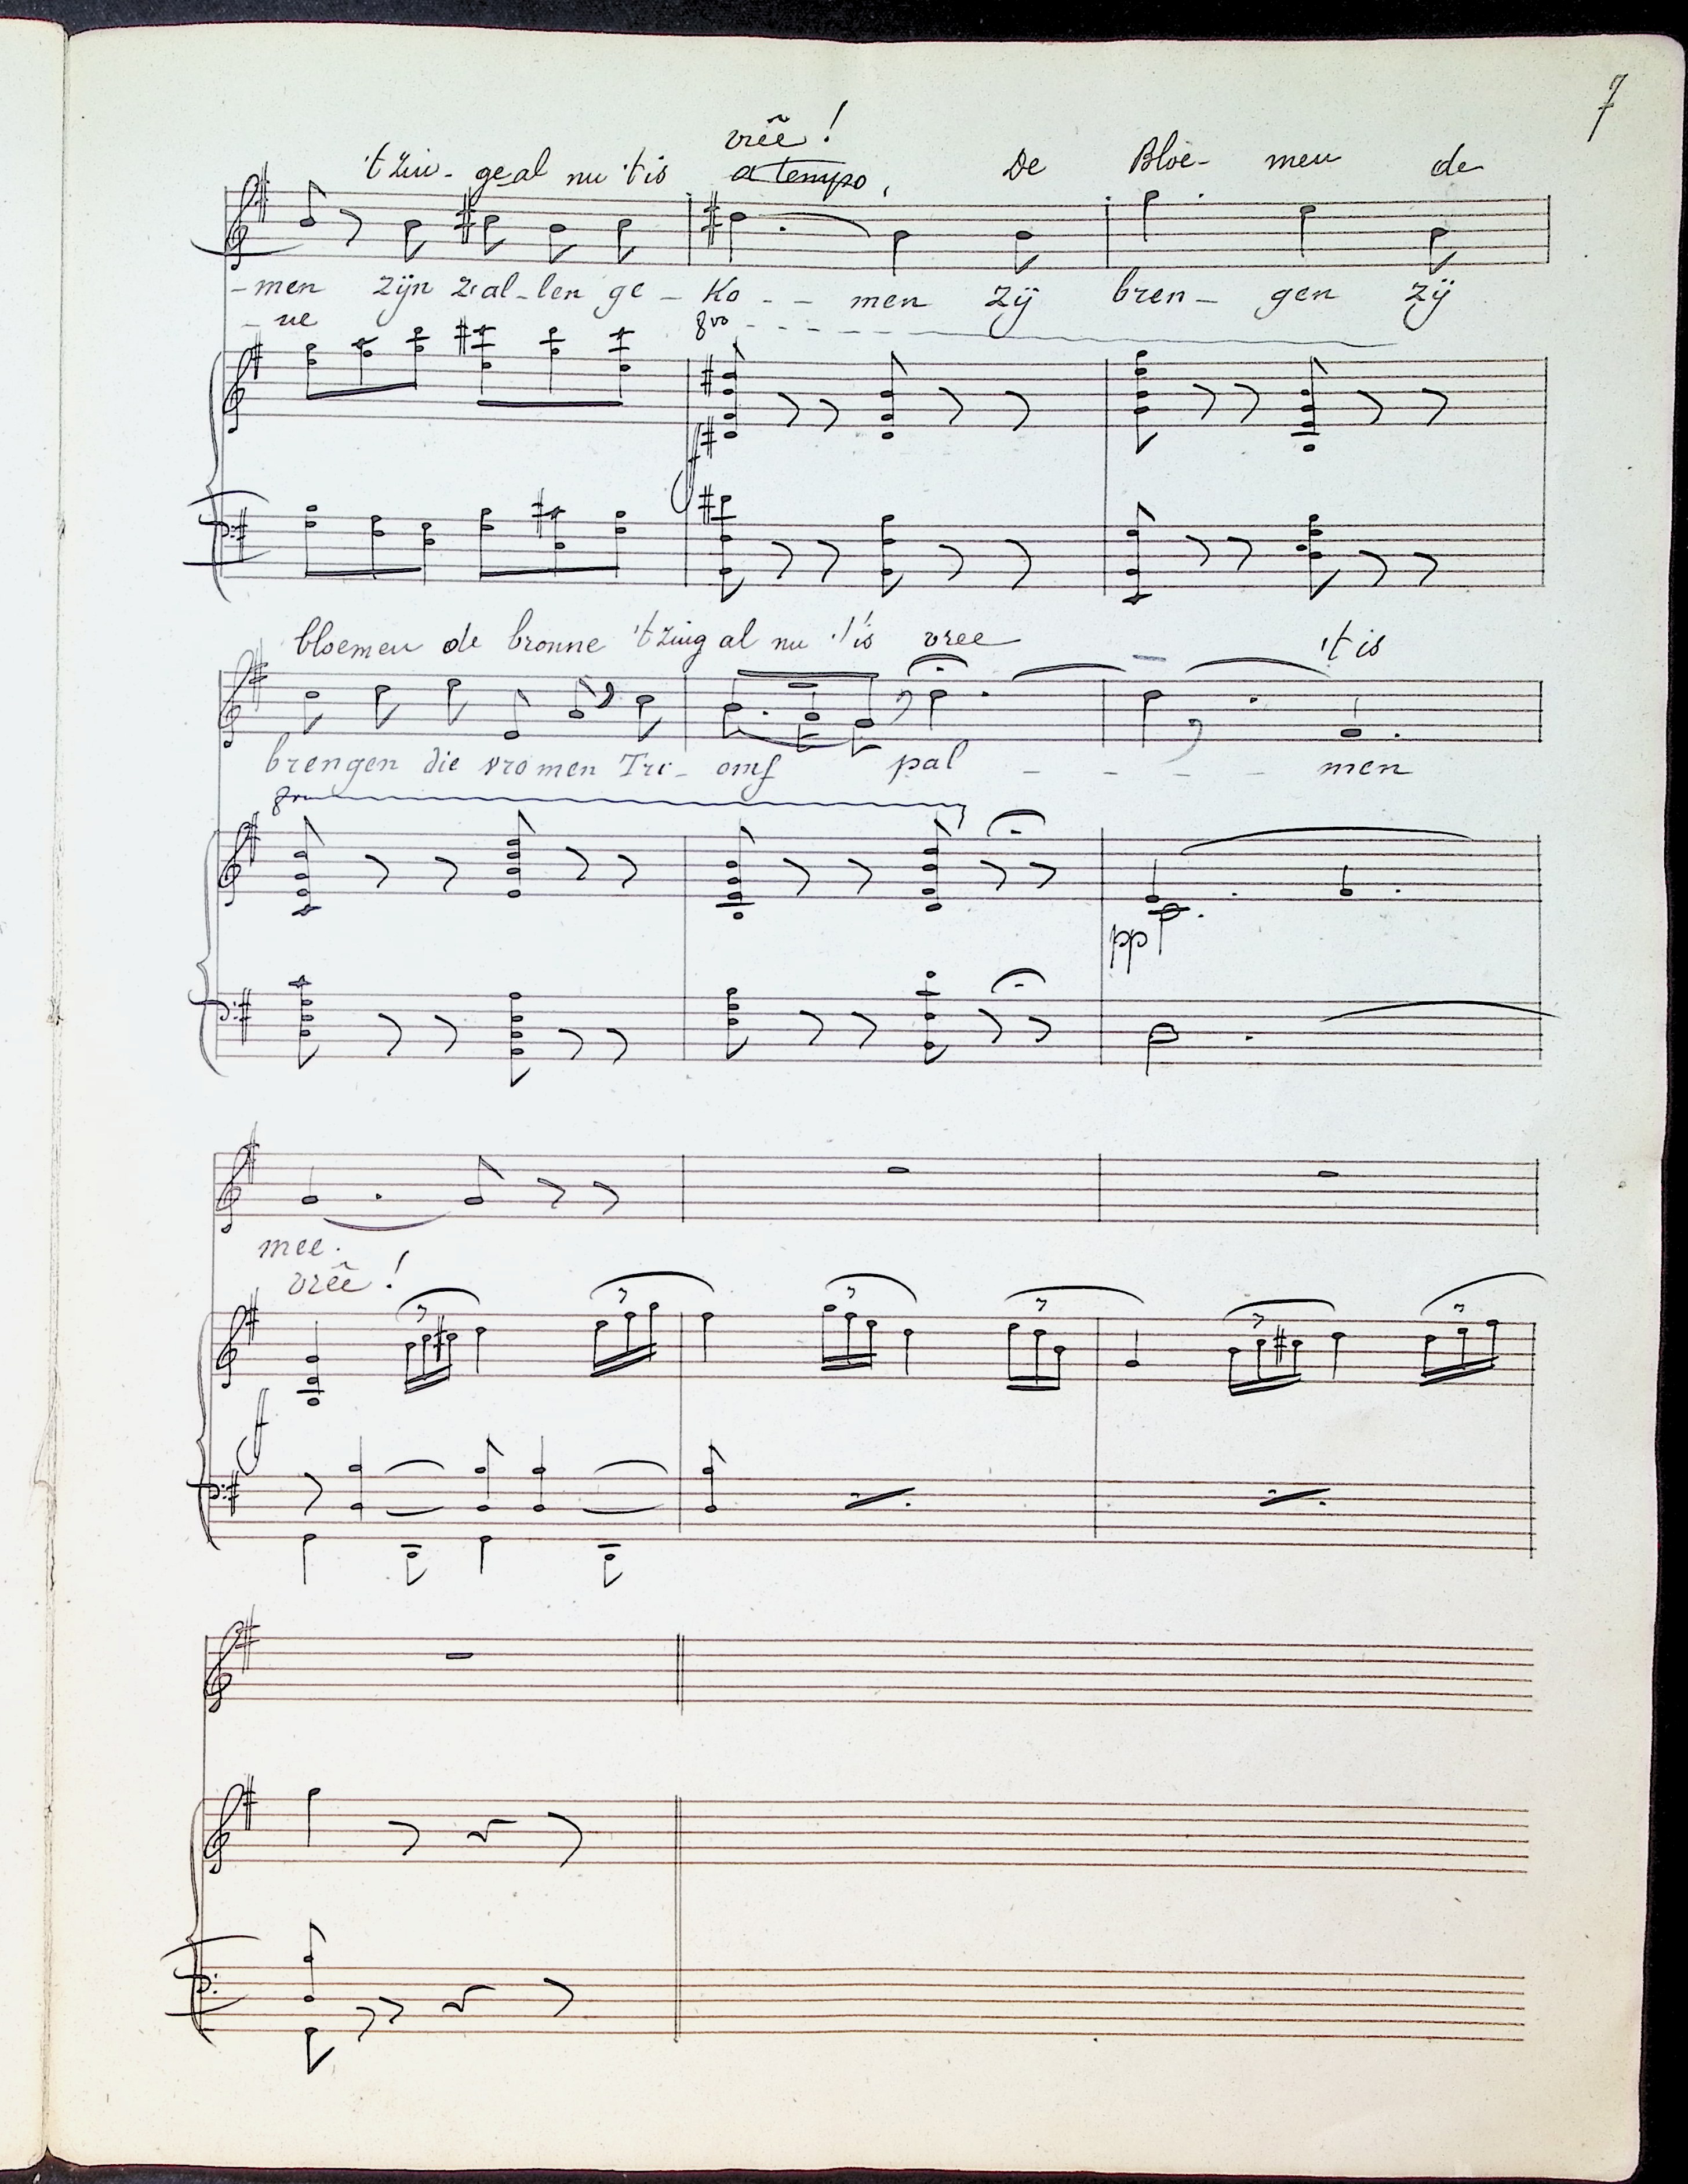 7
vrêe !
't Zin- ge al nu 't is a tempo, De Bloe- men de
-men zijn z'al-len ge - Ko - - men zij bren- gen zij
- ve 8vo
f
bloemen de bronne 't zing al nu 't is vree 't is
brengen die vromen Tri- omf pal - - - - men
8va
pp
mee.
vrêe !
3 3 3 3 3 3
f